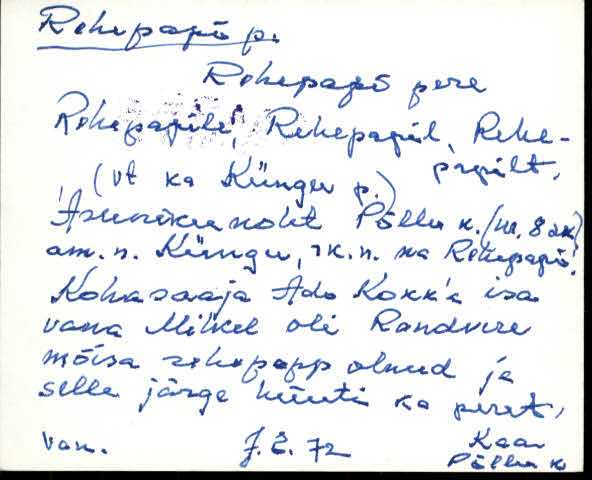 Rehepapõ p.
Rehepapõ pere
Rehepapile, Rehepapil, Rehe-
papilt,
(vt ka Küngu p.)
Asunikukoht Põllu k. (nr. 8
am. n. Küngu, rk. n. ka Rehepapõ.
Kohasaaja Ado Kokk'a isa
vana Mihkel oli Randvere
mõisa rehepapp olnud ja
selle järge hüüti ka peret,
Van. J. E. 72 Kaar
Põllu k